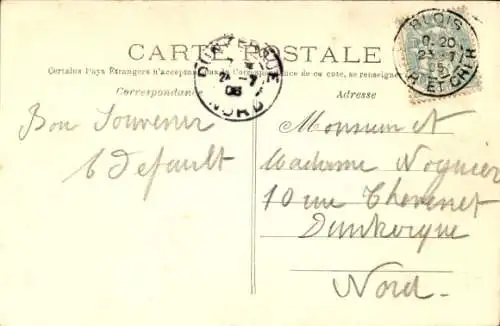 CARTE POSTALE
Certains Pays Étrangers n'acceptant pas la Correspondance de ce côté, se renseigner
Correspondance
Adresse
BLOIS
23-7
05
R ET CHER
DUNKERQUE
24-7
05
NORD
Bon Souvenir
Default
Monsieur et
Madame Noguier
10 rue Thevenet
Dunkerque
Nord.